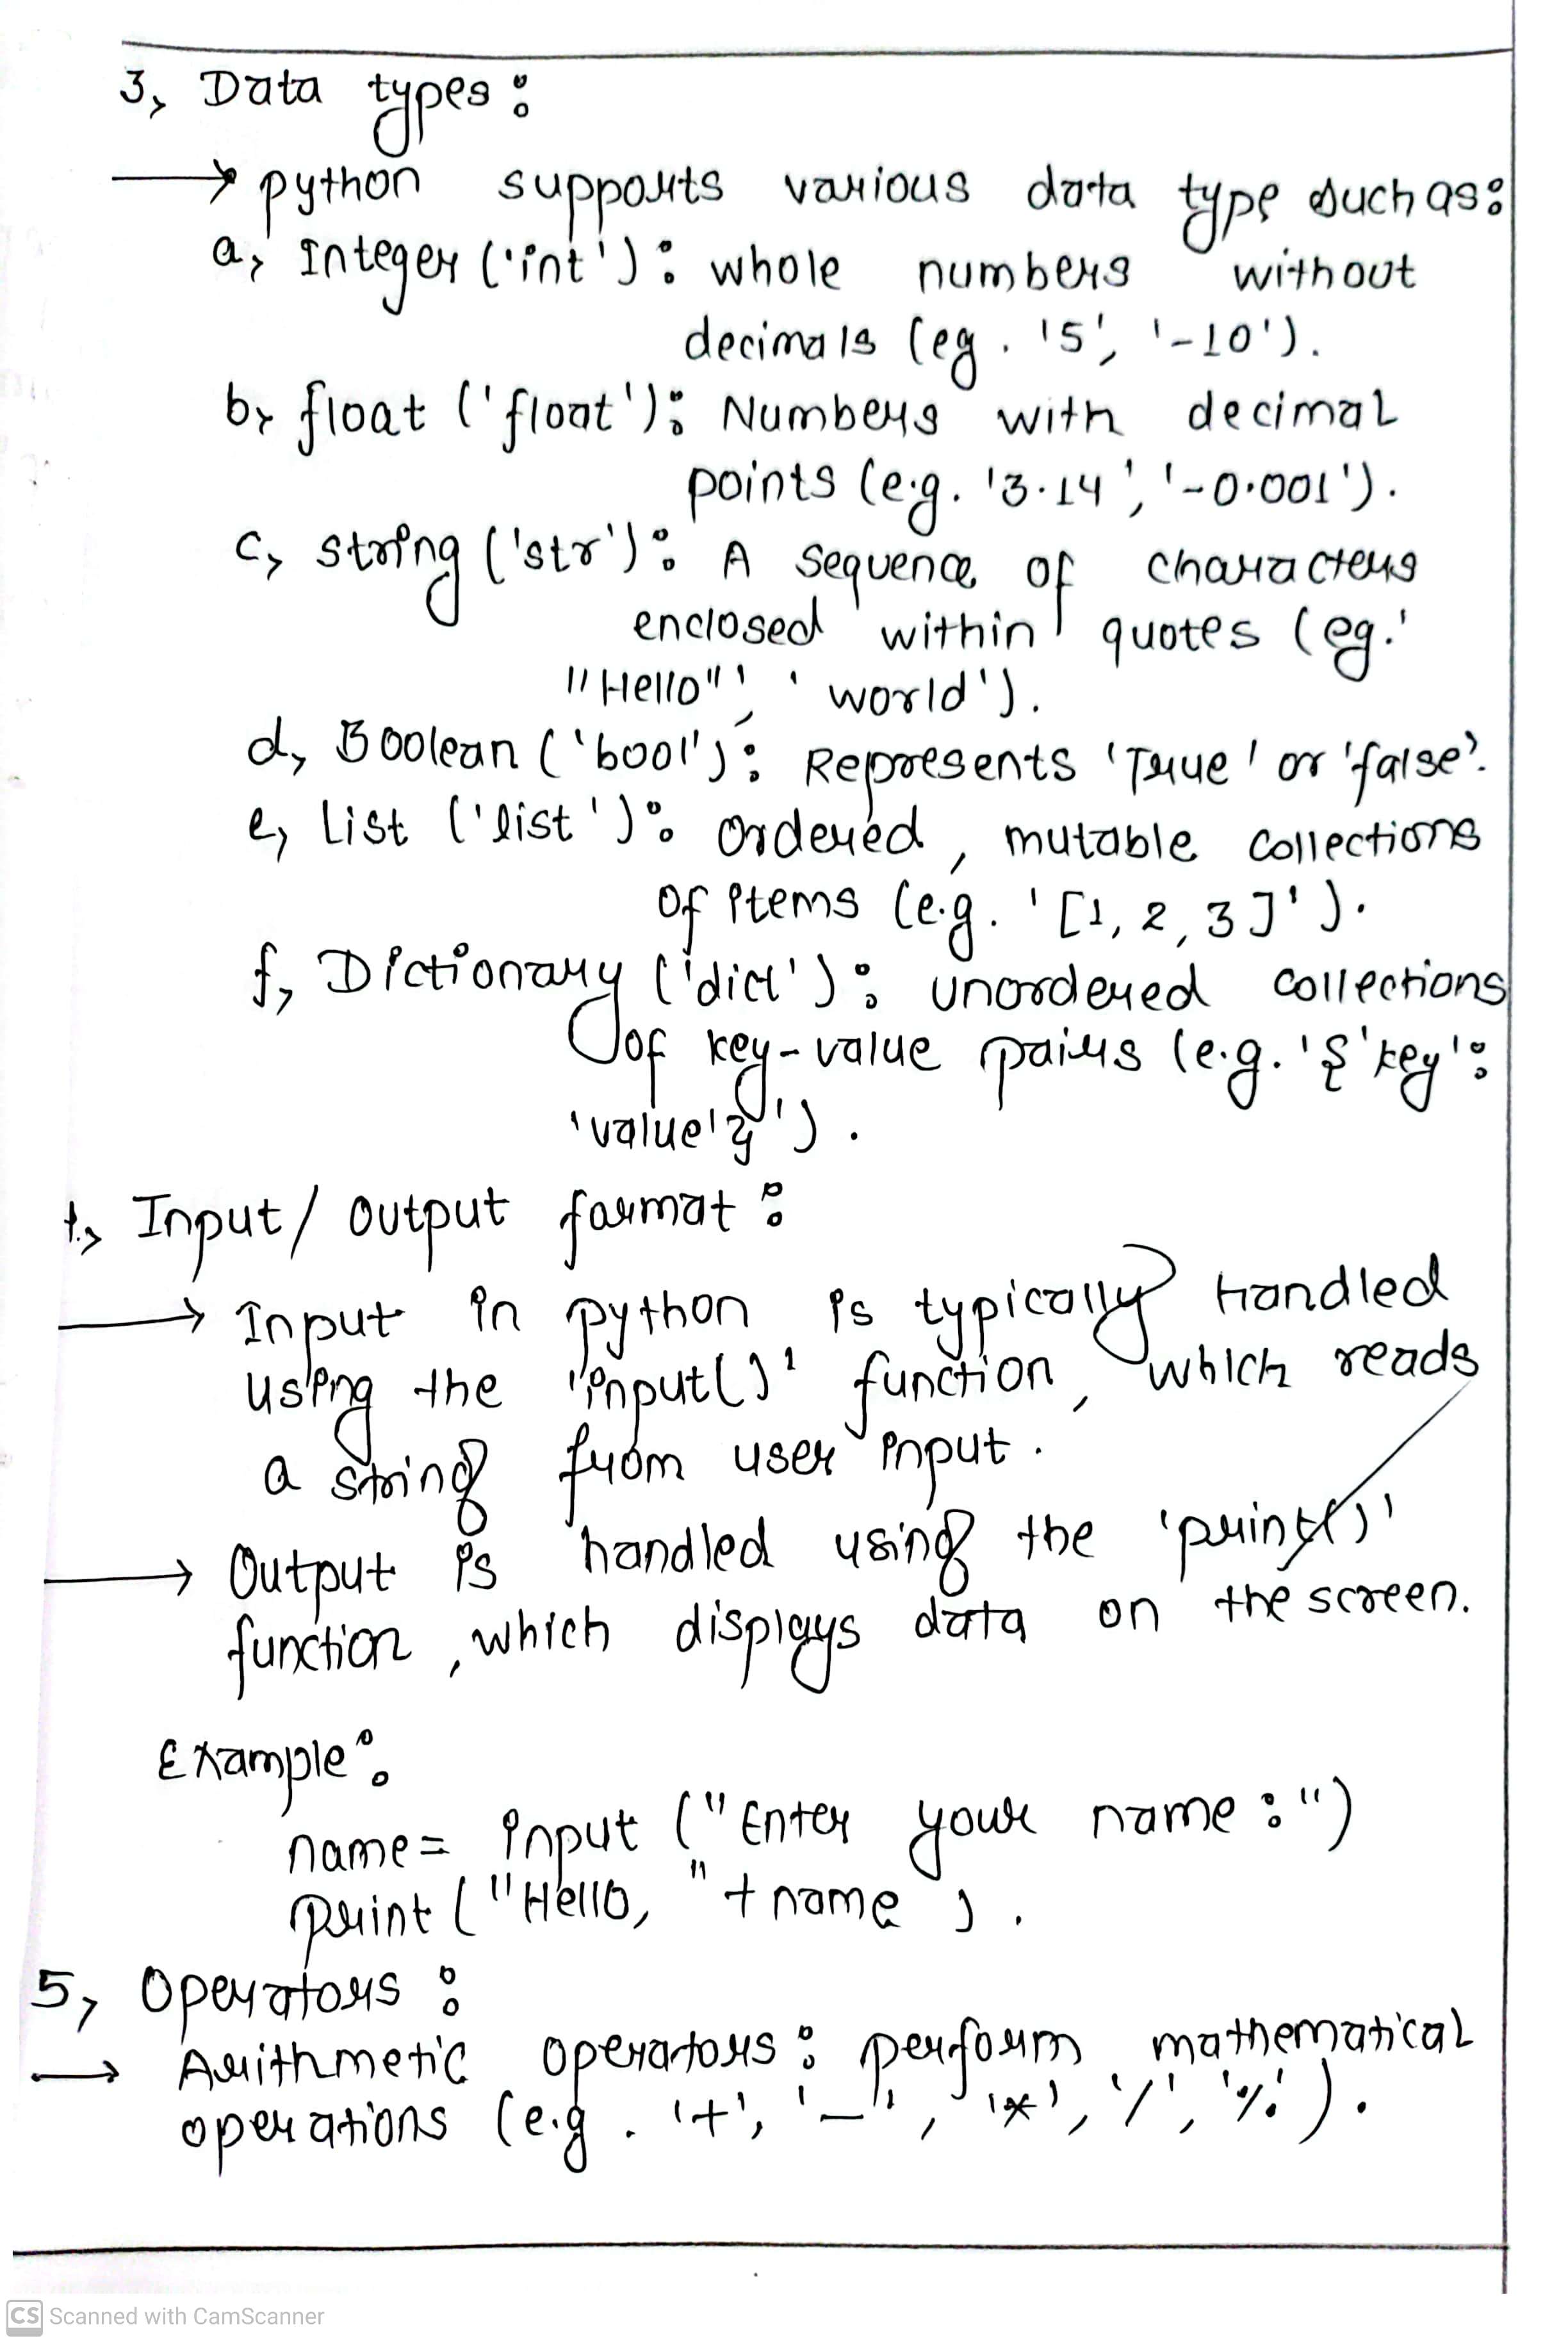 3, Data types :
→ python supports various data type such as:
a, Integer ('int') : whole numbers without
decimals (eg. '5', '-10').
b, float ('float') : Numbers with decimal
points (e.g. '3.14', '-0.001').
c, string ('str') : A sequence of characters
enclosed within quotes (eg.'
"Hello"', 'world').
d, Boolean ('bool') : Represents 'True' or 'false'.
e, List ('list') : ordered, mutable collections
of items (e.g. '[1, 2, 3]').
f, Dictionary ('dict') : unordered collections
of key-value pairs (e.g. '{'key':
'value'}').
Input / output format :
→ Input in python is typically handled
using the 'input()' function, which reads
a string from user input.
→ Output is handled using the 'print()'
function, which displays data on the screen.
Example :
name = input ("Enter your name :")
print ("Hello, " + name ).
5, Operators :
→ Arithmetic operators : perform mathematical
operations (e.g. '+', '-', '*', '/', '%').
CS Scanned with CamScanner